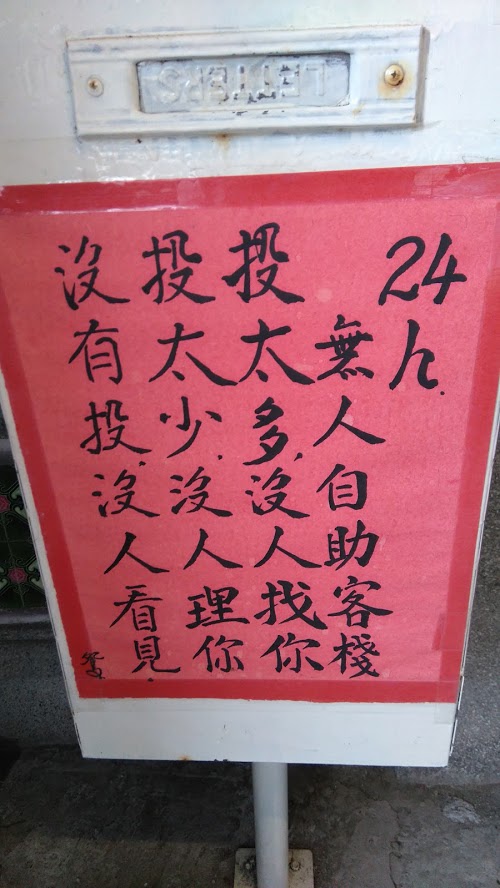 LETTERS
24h.
無人自助客棧
投太多,沒人找你
投太少,沒人理你
沒有投,沒人看見.